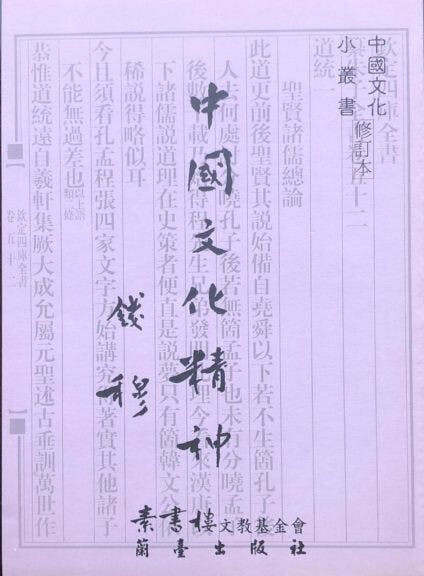 中國文化
小叢書
修訂本
中國文化精神
錢穆
素書樓文教基金會
蘭臺出版社
欽定四庫全書
全書 五十二
道統一
聖賢諸儒總論
此道更前後聖賢其說始備自堯舜以下若不生箇孔子
人去何處 分曉孔子後若無箇孟子也未有分曉孟
後數 載乃 得程先生兄弟發明此理今 來漢唐
下諸儒說道理在史策者便直是說夢只有箇韓文公
稀說得略似耳
今且須看孔孟程張四家文字方始講究 著實其他諸子
不能無過差也以上語類 條
欽定四庫全書
卷五十二
恭惟道統遠自羲軒集厥大成允屬元聖述古垂訓萬世作